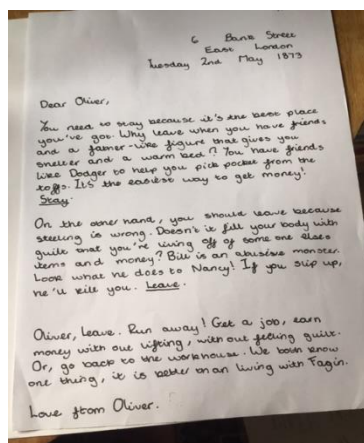 6 Bank Street
East London
Tuesday 2nd May 1873
Dear Oliver,
You need to stay because it's the best place
you've got. Why leave when you have friends
and a father-like figure that gives you
shelter and a warm bed? You have friends
like Dodger to help you pick pocket from the
toffs. It's the easiest way to get money!
Stay.
On the other hand, you should leave because
steeling is wrong. Doesn't it fill your body with
guilt that you're living off of some one elses
items and money? Bill is an abusive monster.
Look what he does to Nancy! If you slip up,
he'll kill you. Leave.
Oliver, Leave. Run away! Get a job, earn
money with out lifting, with out feeling guilt.
Or, go back to the workhouse. We both know
one thing, it is better than living with Fagin.
Love from Oliver.